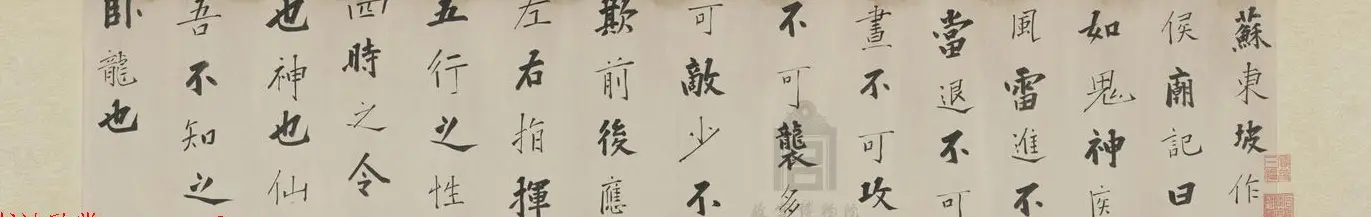 蘇東坡作
侯廟記曰
如鬼神疾
風雷進不
當退不可
晝不可攻
不可襲多
可敵少不
欺前後應
左右指揮
五行之性
四時之令
也神也仙
吾不知之
臥龍也